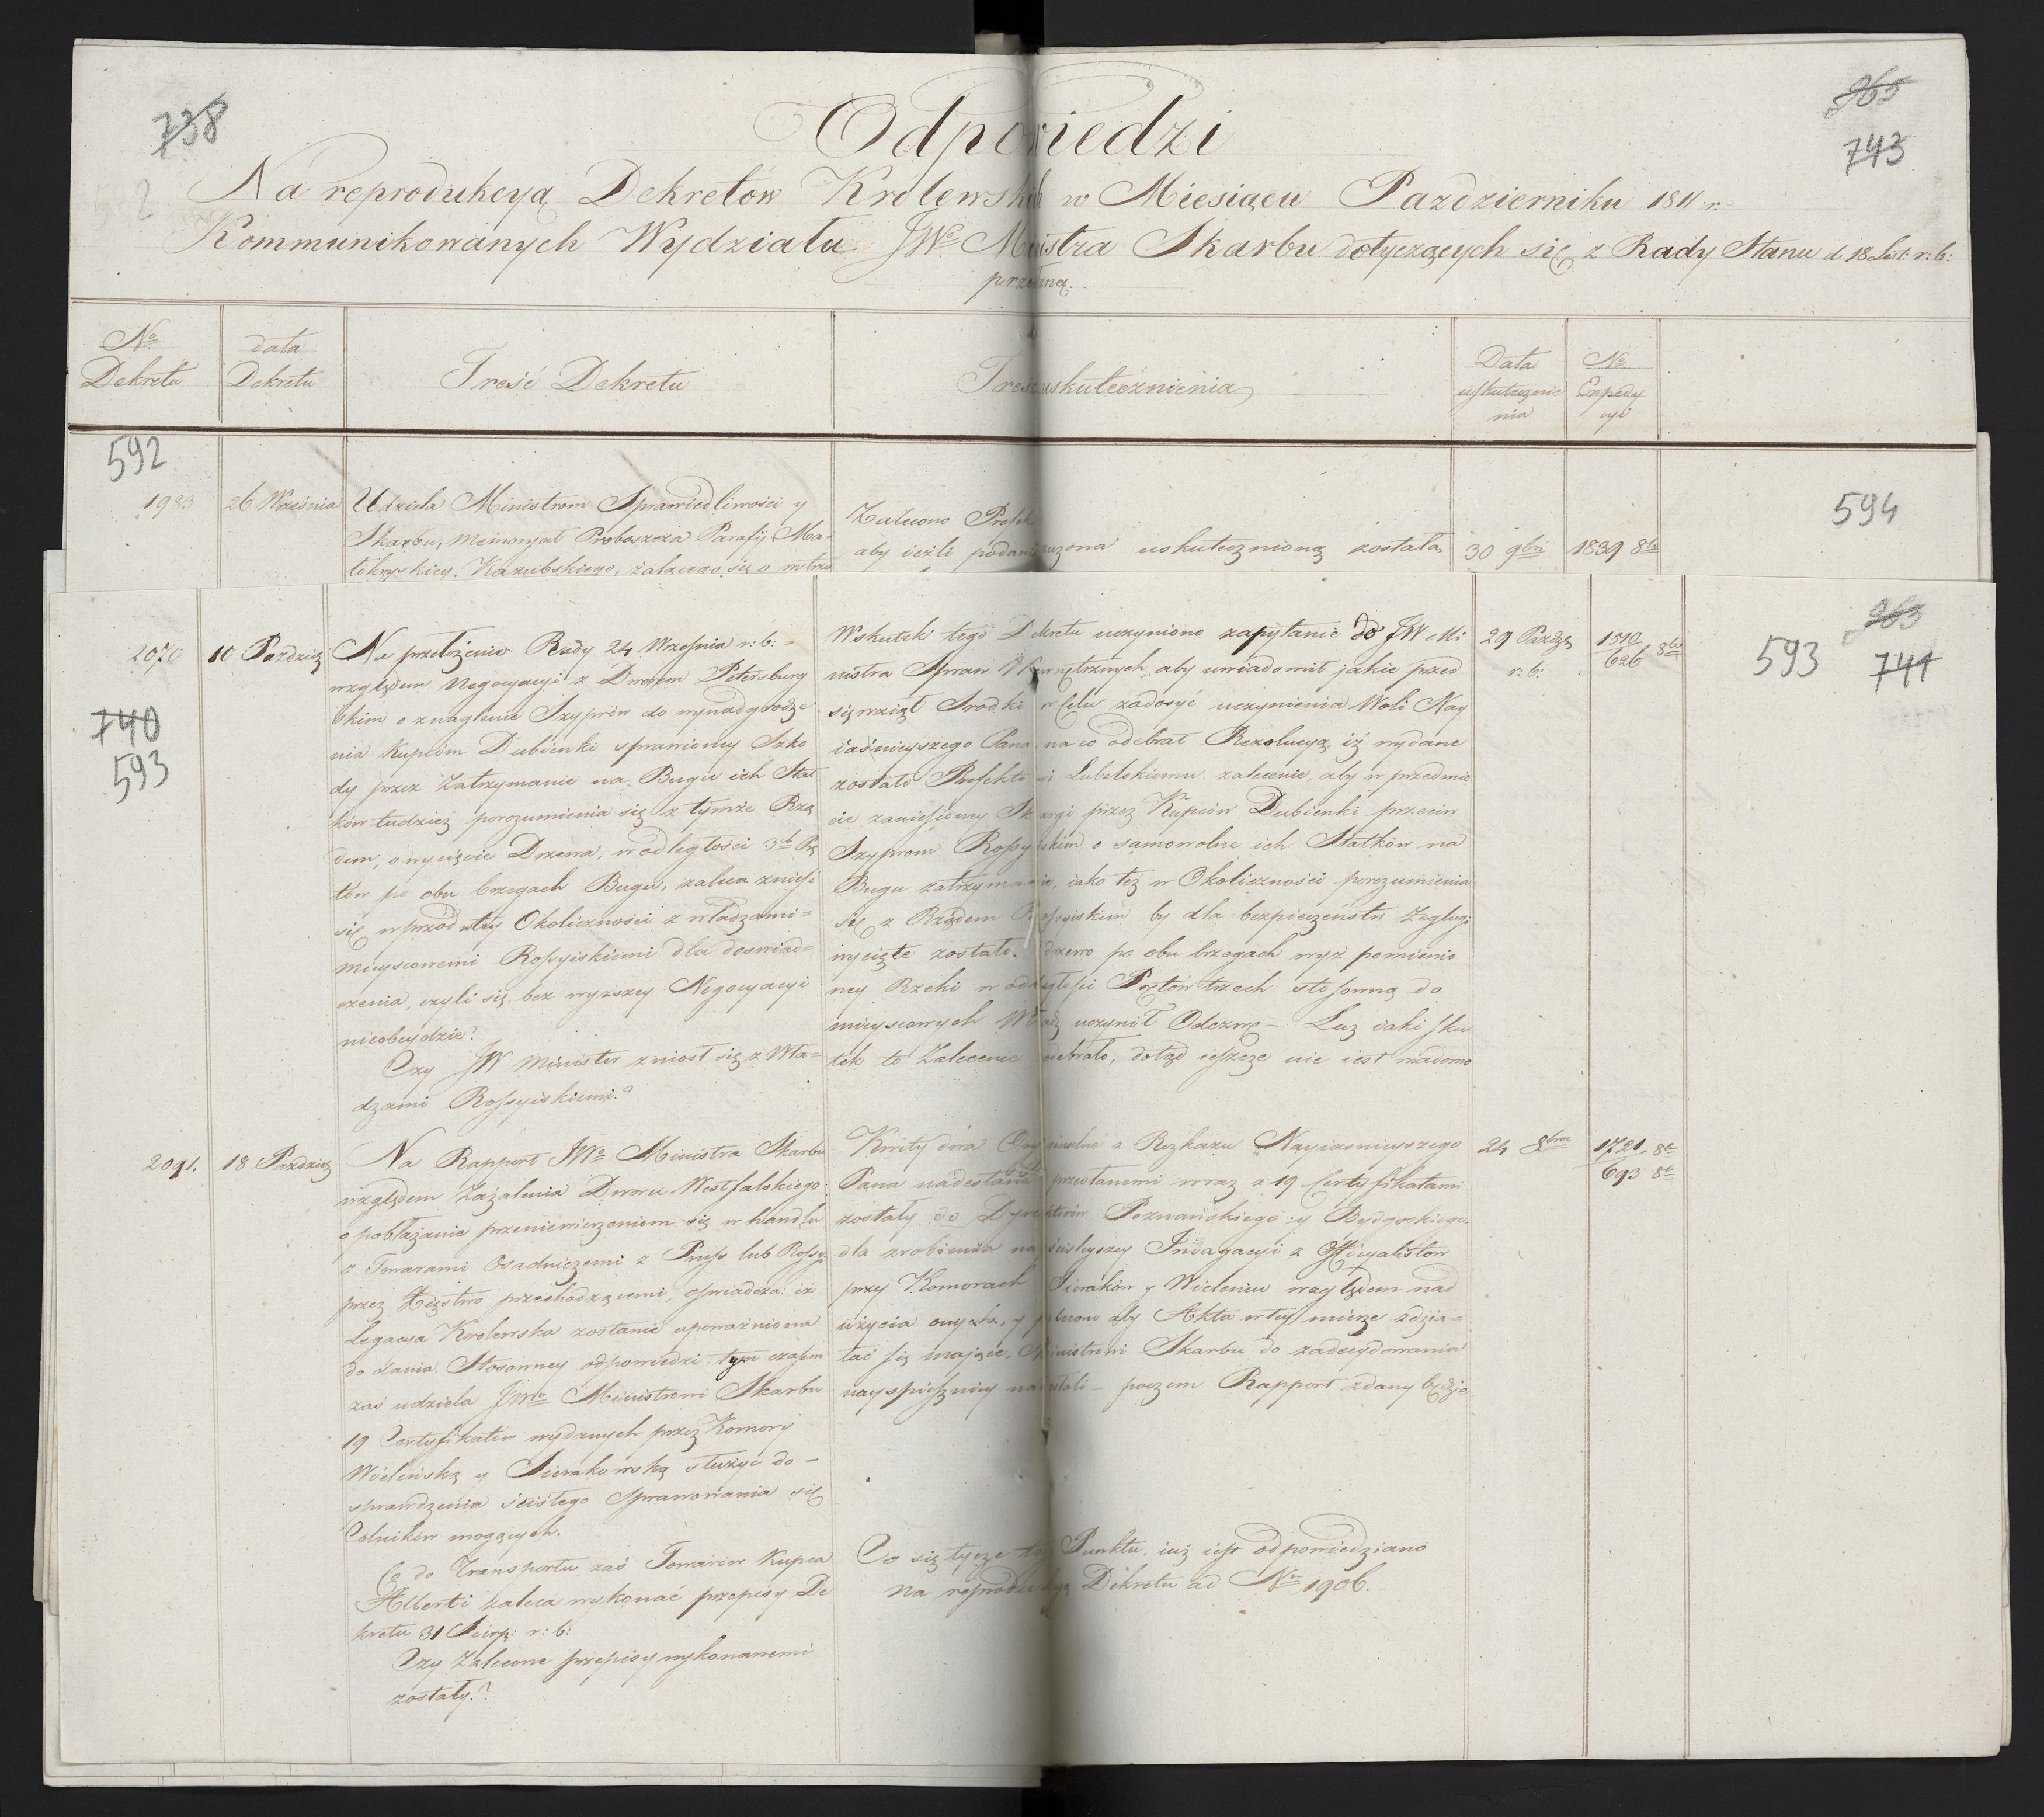 738
965
743
Odpowiedzi
Na reprodukcyą Dekretów Królewskich w Miesiącu Pazdzierniku 1811 r.
Kommunikowanych Wydziału JWo Ministra Skarbu dotyczących się z Rady Stanu d 18 List: r: b:
przesłaną.
No Dekretu
data Dekretu
Treść Dekretu
Treść uskutecznienia
Data uskutecznienia
No Expedycyi
592
594
1983
26 Września
Udziela Ministrom Sprawiedliwości y
Skarbu, Memoryał Proboszcza Parafij Ma-
Kazubskiego, żalącego się o
Zalecono
aby ieżli uskutecznioną została
30 9bri
1839 8br
2070
10 Pazdzier
740
593
Na przełożenie Rady 24 Września r: b: =
względem Negocyacyi z Dworem Petersburg
skim o znaglenie Szyprów do wynadgrodze
nia Kupcom Dubienki sprawioney Szko
dy przez Zatrzymanie na Bugu ich Stat
ków tudzież porozumienia się z tymże Rzą
dem, o wycięcie Drzewa, w odległości 3ch Prę
tów po obu brzegach Bugu, zaleca znieść
się wprzód w tey Okoliczności z władzami =
mieyscowemi Rossyiskiemi dla doswiad=
czenia, czyli się bez wyższey Negocyacyi
nieobeydzie?
Czy JW Minister zniosł się z Wła=
dzami Rossyiskiemi?
Wskutek tego Dekretu uczyniono zapytanie do JW Mi
nistra Spraw Wewnętrznych, aby uwiadomił jakie przed
sięwziął Srodki w celu zadosyć uczynienia Woli Nay
iaśnieyszego Pana, na co odebrał Rezolucyą, iż wydane
zostało Prefektowi Lubelskiemu zalecenie, aby w przedmio
cie zaniesioney Skargi przez Kupców Dubienki przeciw
Szyprom Rossyiskim o samowolne ich Statków na
Bugu zatrzymanie, iako też w Okoliczności porozumienia
się z Rządem Rossyiskim by dla bezpieczeństw Żeglugi
wycięte zostało drzewo po obu brzegach wyż pomienio
ney Rzeki w odległości Prętów trzech stosowną do
mieyscowych Władz uczynił Odezwę – Lecz iaki sku
tek to Zalecenie odebrało, dotąd ieszcze nie iest wiadomo
29 Pazdz
r: b:
1510
626 8br
593
963
741
2091.
18 Pazdzier
Na Rapport JWo Ministra Skarbu
względem Zażalenia Dworu Westfalskiego
o pobłażanie przeniewierzeniom się w handlu
z Towarami Osadniczemi z Pruss lub Rossyi
przez Xięstwo przechodzącemi, oświadcza iż
Legacya Królewska zostanie upoważniona
do dania Stosowney odpowiedzi tym czasem
zaś udziela JWo Ministrowi Skarbu
19 Certyfikatów wydanych przez Komory
Wieleńską y Sierakowską służyć do –
sprawdzenia ścisłego Sprawowania się
Celników mogących.
Co do Transportu zaś Towarów Kupca
Alberti zaleca wykonać przepisy De
kretu 31 Sierp: r: b:
Czy Zalecone przepisy wykonanemi
zostały?
Kwity dwa Oryginalne z Rozkazu Nayiasnieyszego
Pana nadesłane przesłanemi wraz z 19 Certyfikatami
zostały do Dyrektorów Poznańskiego y Bydgoskiego
dla zrobienia nayściśleyszey Indagacyi z Officyalistów
przy Komorach Sieraków y Wieleniu względem nad
użycia onych, y polecono aby Akta w tey mierze zdzia=
łać się maiące, Ministrowi Skarbu do zadecydowania
nayspieszniey nadesłali – poczem Rapport zdany będzie
24 8bra
1721. 8br
693 8br
Co się tycze tego Punktu, iuż iest odpowiedziano
na reprodukcyą Dekretu ad No 1906.